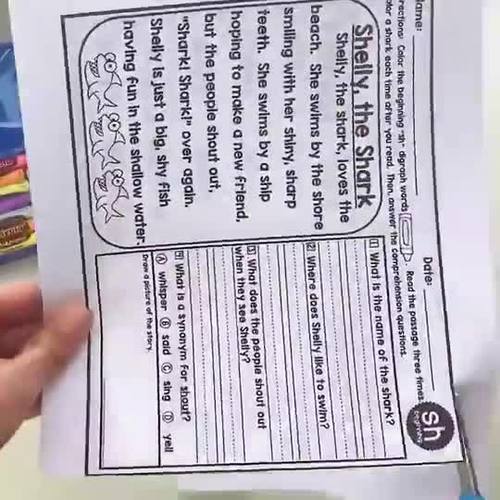 Name:
Date:
Color the beginning "sh" digraph words. Read the passage three times.
a shark each time after you read. Then, answer the comprehension questions.
sh
beginning
Shelly, the Shark
Shelly, the shark, loves the
beach. She swims by the shore
smiling with her shiny, sharp
teeth. She swims by a ship
hoping to make a new friend,
but the people shout out,
"Shark! Shark!" over again.
Shelly is just a big, shy fish
having fun in the shallow water.
1 What is the name of the shark?
2 Where does Shelly like to swim?
3 What does the people shout out
when they see Shelly?
4 What is a synonym for shout?
A whisper B said C sing D yell
Draw a picture of the story.